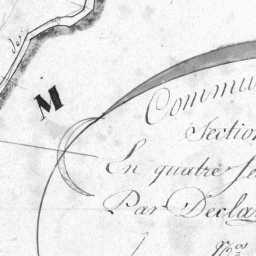 de
M
Commu
Section
En quatre fe
Par Decla